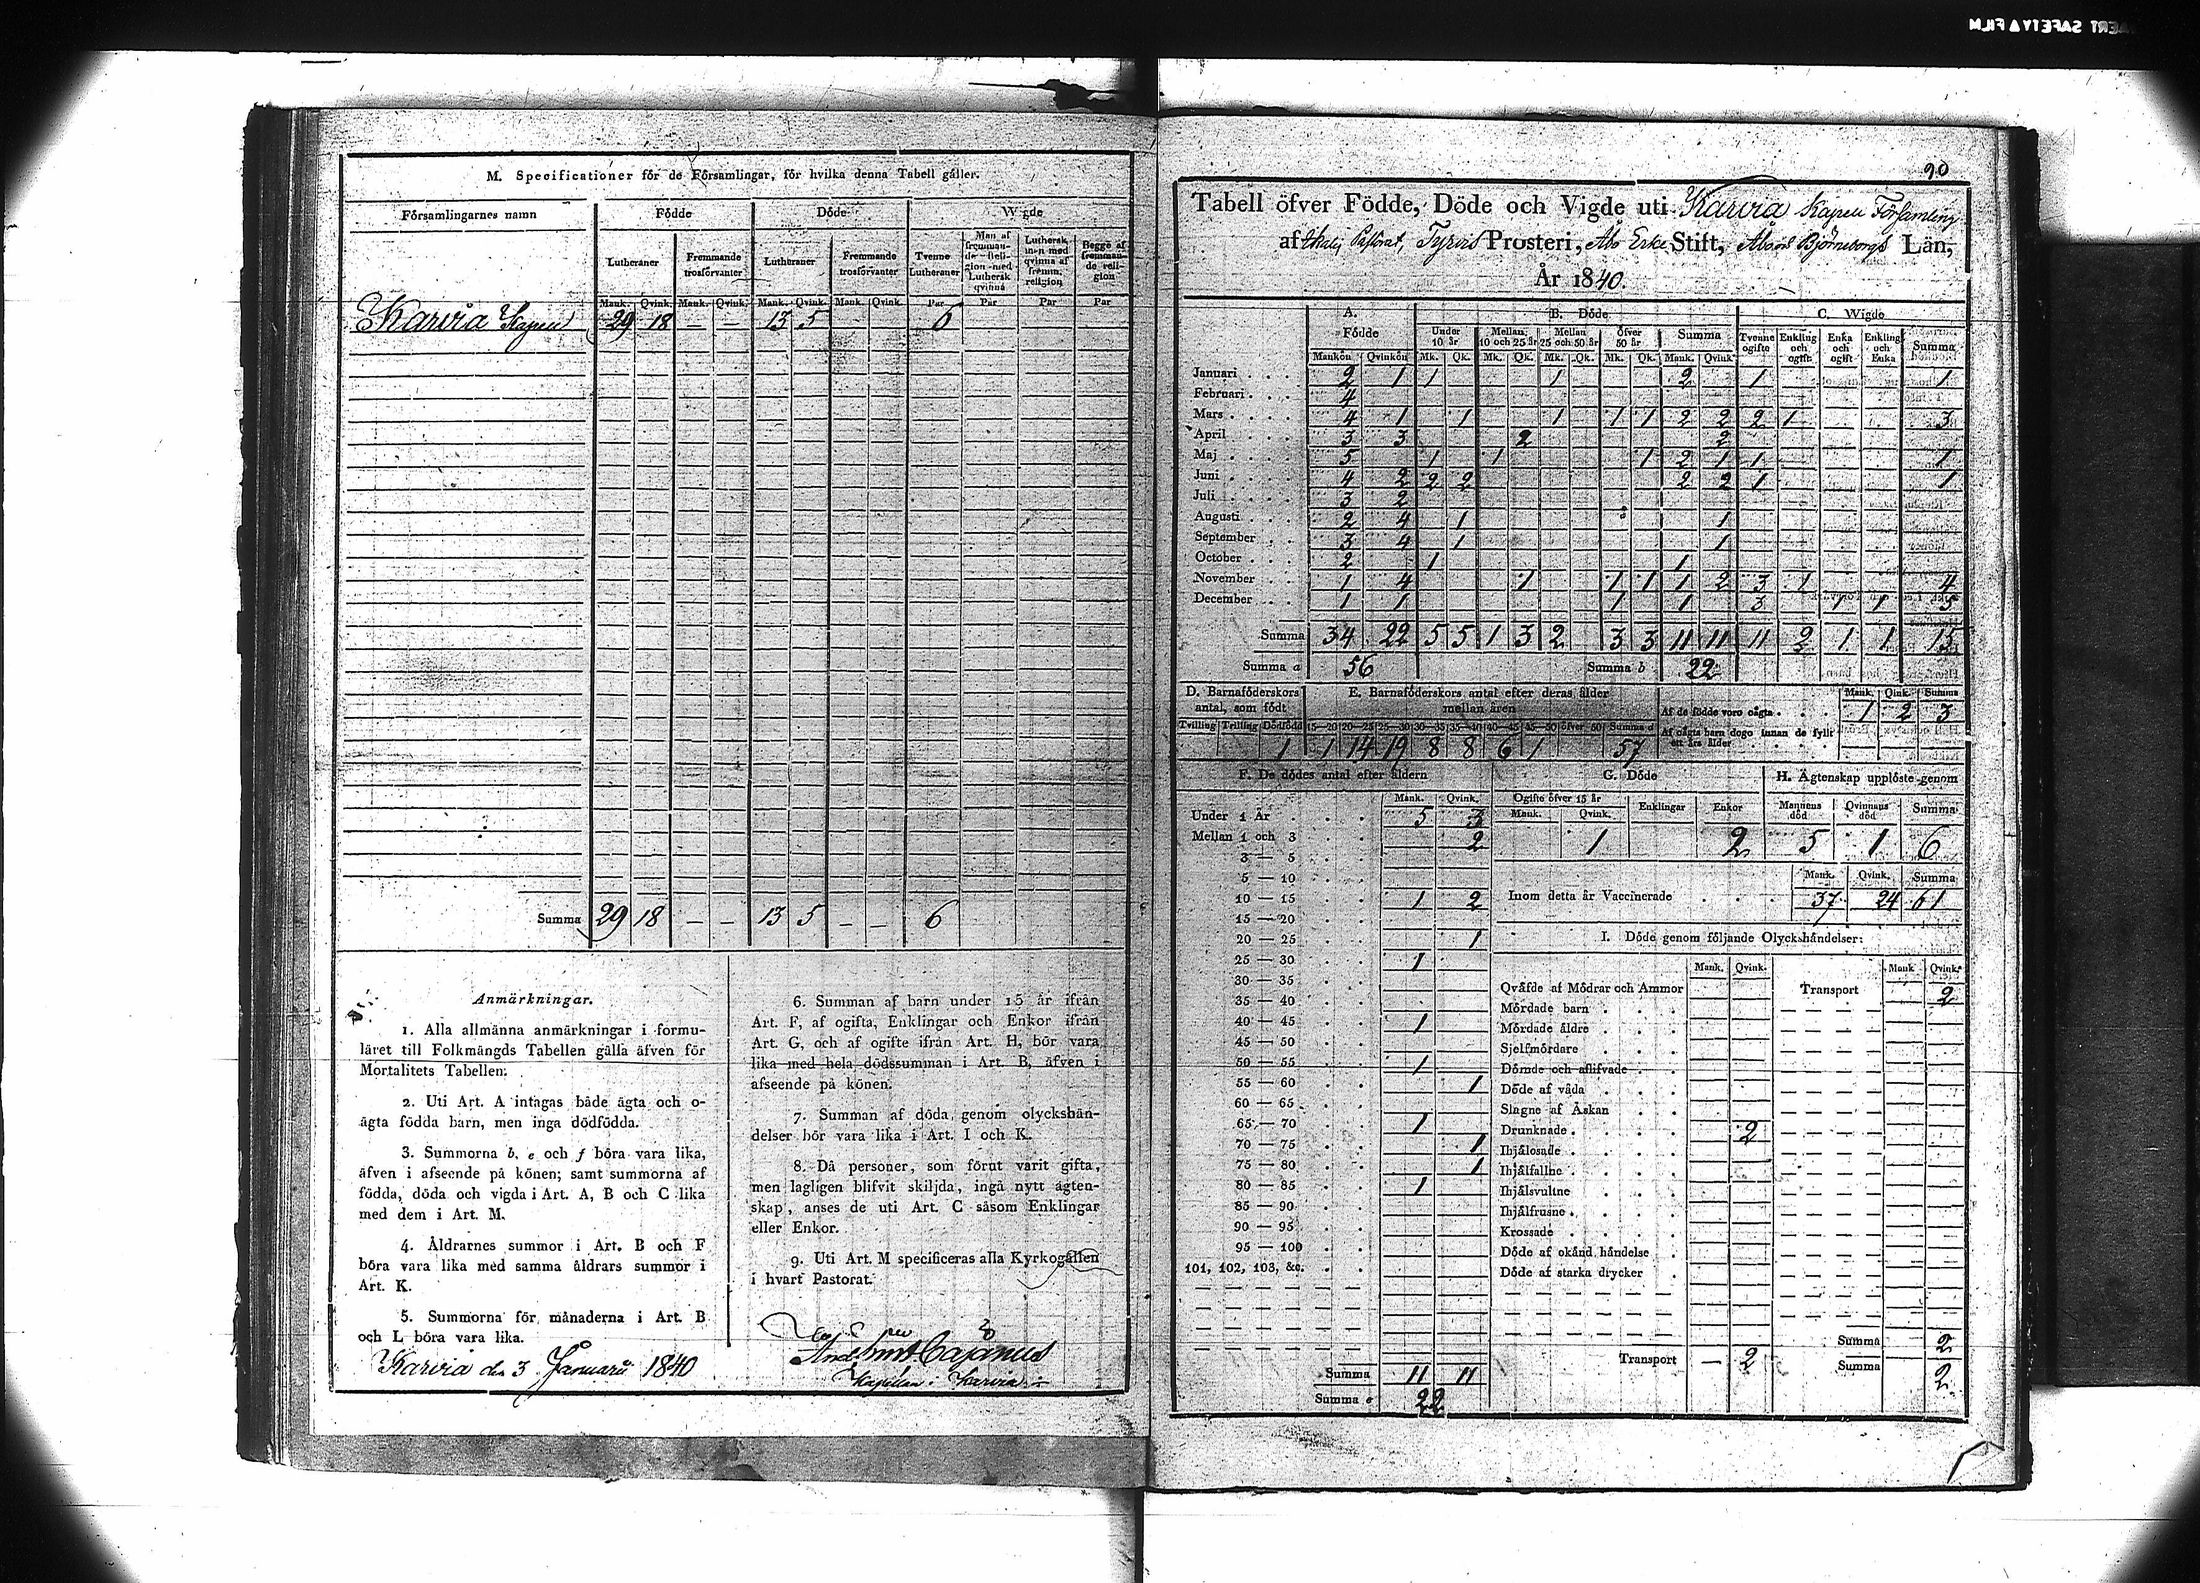 M. Specificationer för de Församlingar, för hvilka denna Tabell gäller.
Församlingarnes namn Födde Döde Wigde
Lutheraner Fremmande trosförvanter Lutheraner Fremmande trosförvanter Tvenne Lutheraner Man af fremmande religion med Luthersk qvinna Luthersk man med qvinna af fremm. religion Begge af fremmande religion
Mank. Qvink. Mank. Qvink. Mank. Qvink. Mank. Qvink. Par Par Par Par
Karvia Kapell 29 18 — — 13 5 6
Summa 29 18 — — 13 5 — — 6
Anmärkningar.
1. Alla allmänna anmärkningar i formu-
läret till Folkmängds Tabellen gälla äfven för
Mortalitets Tabellen.
2. Uti Art. A intagas både ägta och o-
ägta födda barn, men inga dödfödda.
3. Summorna b, e och f böra vara lika,
äfven i afseende på könen; samt summorna af
födda, döda och vigda i Art. A, B och C lika
med dem i Art. M.
4. Åldrarnes summor i Art. B och F
böra vara lika med samma åldrars summor i
Art. K.
5. Summorna för månaderna i Art. B
och L böra vara lika.
Karvia den 3 Januarii 1840
6. Summan af barn under 15 år ifrån
Art. F, af ogifta, Enklingar och Enkor ifrån
Art. G, och af ogifte ifrån Art. H, bör vara
lika med hela dödssumman i Art. B, äfven i
afseende på könen.
7. Summan af döda genom olyckshän-
delser bör vara lika i Art. I och K.
8. Då personer, som förut varit gifta,
men lagligen blifvit skiljda, ingå nytt ägten-
skap, anses de uti Art. C såsom Enklingar
eller Enkor.
9. Uti Art. M specificeras alla Kyrkogällen
i hvart Pastorat.
Cajanus
Kapellan i Karvia
90
Tabell öfver Födde, Döde och Vigde uti Karvia Kapell Församling
af Ikalis Pastorat, Tyrvis Prosteri, Åbo Erke Stift, Åbo och Björneborgs Län,
År 1840.
A. Födde B. Döde C. Wigde
Under 10 år Mellan 10 och 25 år Mellan 25 och 50 år Öfver 50 år Summa Tvenne ogifte Enkling och ogift Enka och ogift Enkling och Enka Summa
Mankön Qvinkön Mk. Qk. Mk. Qk. Mk. Qk. Mk. Qk. Mank. Qvink.
Januari 2 1 1 1 2 1 1
Februari 4
Mars 4 1 1 1 1 1 2 2 2 1 3
April 3 3 2 2
Maj 5 1 1 1 2 1 1 1
Juni 4 2 2 2 2 2 1 1
Juli 3 2
Augusti 2 4 1 1
September 3 4 1 1
October 2 1 1
November 1 4 1 1 1 1 2 3 1 4
December 1 1 1 1 3 1 1 5
Summa 34 22 5 5 1 3 2 3 3 11 11 11 2 1 1 15
Summa a 56 Summa b 22
D. Barnaföderskors antal, som födt
Tvilling Trilling Dödfödd
1
E. Barnaföderskors antal efter deras ålder mellan åren
15—20 20—25 25—30 30—35 35—40 40—45 45—50 öfver 50 Summa d
1 14 19 8 8 6 1 57
Mank. Qink. Summa
Af de födde voro oägta 1 2 3
Af oägta barn dogo innan de fyllt
ett års ålder
F. De dödes antal efter åldern
Mank. Qvink.
Under 1 År 5 3
Mellan 1 och 3 2
3 — 5
5 — 10
10 — 15 1 2
15 — 20
20 — 25 1
25 — 30 1
30 — 35
35 — 40
40 — 45 1
45 — 50
50 — 55 1
55 — 60 1
60 — 65
65 — 70 1
70 — 75 1
75 — 80 1
80 — 85 1
85 — 90
90 — 95
95 — 100
101, 102, 103, &c.
Summa 11 11
Summa e 22
G. Döde
Ogifte öfver 15 år Enklingar Enkor
Mank. Qvink.
1 2
H. Ägtenskap upplöste genom
Mannens död Qvinnans död Summa
5 1 6
Mank. Qvink. Summa
Inom detta år Vaccinerade 37 24 61
I. Döde genom följande Olyckshändelser:
Mank. Qvink. Mank Qvink.
Qväfde af Mödrar och Ammor Transport 2
Mördade barn
Mördade äldre
Sjelfmördare
Dömde och aflifvade
Döde af våda
Slagne af Åskan
Drunknade 2
Ihjälosade
Ihjälfallne
Ihjälsvultne
Ihjälfrusne
Krossade
Döde af okänd händelse
Döde af starka drycker
Summa 2
Transport — 2 Summa 2
SAFETY FILM